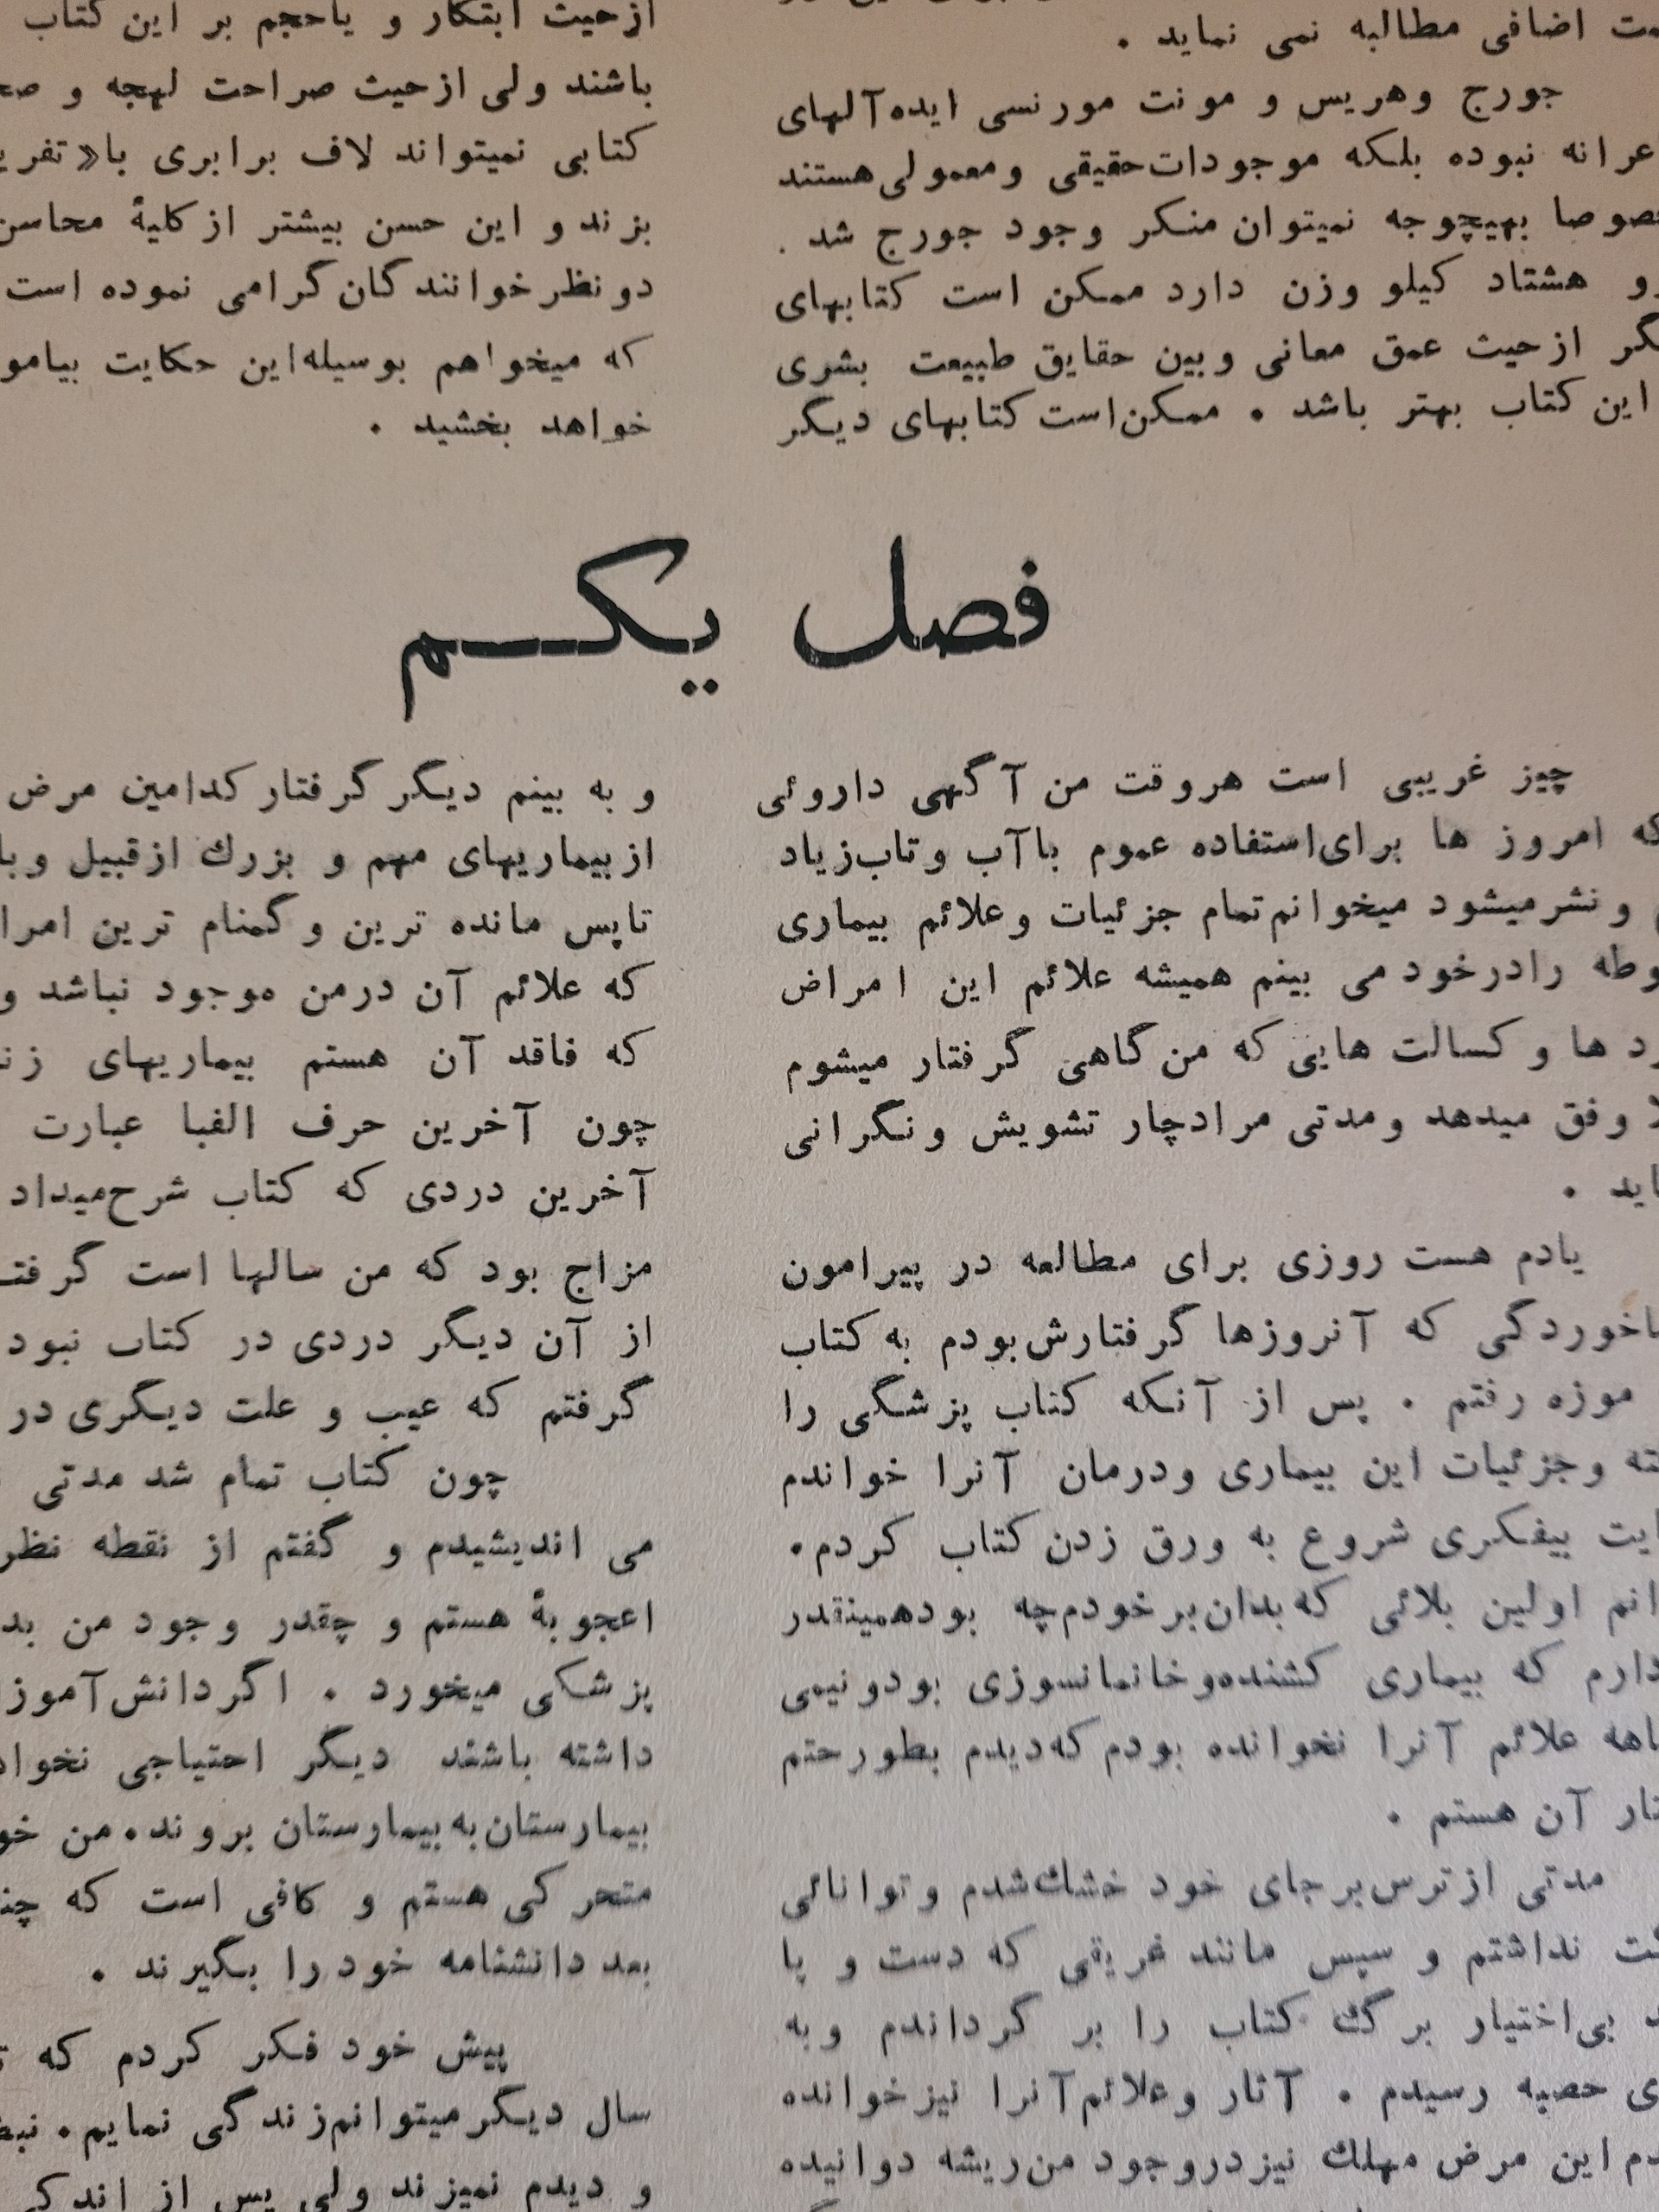 اضافی مطالبه نمی نماید .
جورج وهریس و مونت مورنسی ایده‌آلهای
نبوده بلکه موجودات‌حقیقی و معمولی‌هستند
بهیچوجه نمیتوان منکر وجود جورج شد .
هشتاد کیلو وزن دارد ممکن است کتابهای
ازحیث عمق معانی و بین حقایق طبیعت بشری
این کتاب بهتر باشد . ممکن‌است کتابهای دیگر
ازحیث ابتکار و یاحجم بر این کتاب
باشند ولی ازحیث صراحت لهجه و
کتابی نمیتواند لاف برابری با«
بزند و این حسن بیشتر ازکلیهٔ محاسن
دونظر خوانندگان‌گرامی نموده است
که میخواهم بوسیله‌این حکایت
خواهد بخشید .
فصل یکم
چیز غریبی است هروقت من آگهی داروئی
که امروز ها برای‌استفاده عموم باآب وتاب‌زیاد
و نشرمیشود میخوانم‌تمام جزئیات وعلائم بیماری
رادرخود می بینم همیشه علائم این امراض
ها و کسالت هایی که من‌گاهی گرفتار میشوم
وفق میدهد و مدتی مرادچار تشویش و نگرانی
.
یادم هست روزی برای مطالعه در پیرامون
که آنروزها گرفتارش‌بودم به کتاب
موزه رفتم . پس از آنکه کتاب پزشگی را
وجزئیات این بیماری ودرمان آنرا خواندم
بیفکری شروع به ورق زدن کتاب کردم.
اولین بلائی که‌بدان‌برخودم‌چه بودهمینقدر
دارم که بیماری کشنده‌وخانمانسوزی بودونیمی
علائم آنرا نخوانده بودم که‌دیدم بطورحتم
آن هستم .
مدتی ازترس‌برجای خود خشك‌شدم و توانائی
نداشتم و سپس مانند غریقی که دست و پا
بی‌اختیار برگ کتاب را بر گرداندم وبه
حصبه رسیدم . آثار وعلائم‌آنرا نیزخوانده
این مرض مهلك نیزدروجود من‌ریشه دوانیده
و به بینم دیگر گرفتارکدامین مرض
ازبیماریهای مهم و بزرك ازقبیل
تاپس مانده ترین و گمنام ترین
که علائم آن درمن موجود نباشد و
که فاقد آن هستم بیماریهای
چون آخرین حرف الفبا عبارت
آخرین دردی که کتاب شرح‌میداد
مزاج بود که من سالها است
از آن دیگر دردی در کتاب نبود
گرفتم که عیب و علت دیگری در
چون کتاب تمام شد مدتی
می اندیشیدم و گفتم از نقطه نظر
اعجوبهٔ هستم و چقدر وجود من
پزشکی میخورد . اگردانش‌آموز
داشته باشند دیگر احتیاجی
بیمارستان‌به‌بیمارستان بروند. من
متحرکی هستم و کافی است که
بعد دانشنامه خود را بگیرند .
پیش خود فکر کردم که
سال دیگرمیتوانم‌زندگی نمایم.
و دیدم نمیزند ولی پس از